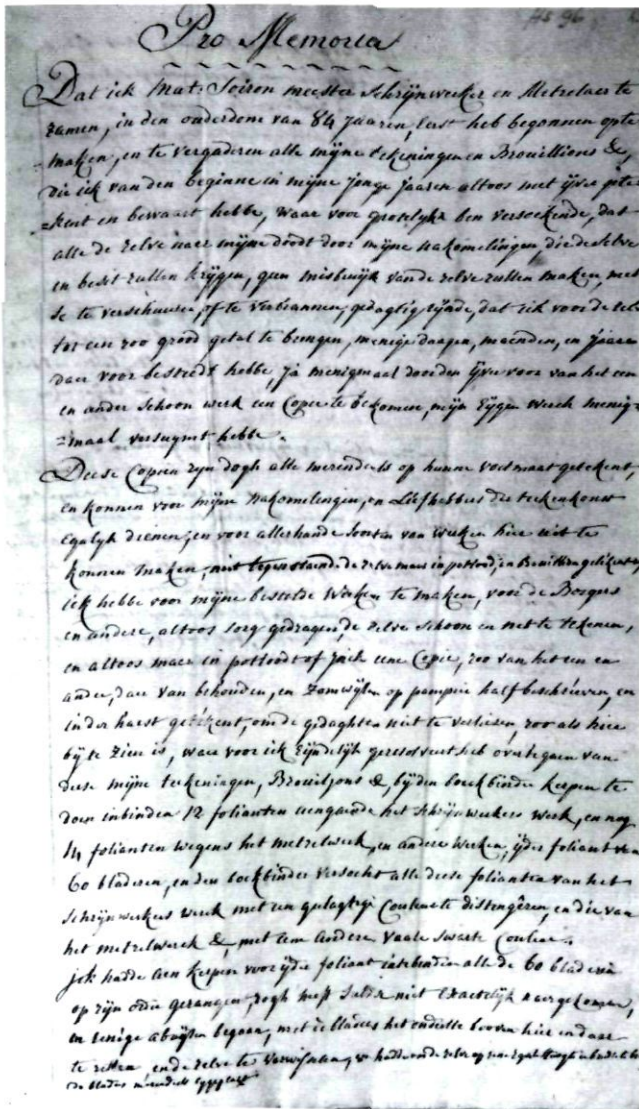 Hs 96
Pro Memoria
Dat ick Mat: Soiron meester schrijnwercker en Metzelaer te
zamen, in den ouderdome van 84 jaaren, eerst heb begonnen op te
maken, en te vergaderen alle mijne tekeningen en Brouillions &,
die ick van den beginne in mijne jonge jaaren altoos met ijver
=kent en bewaart hebbe, waar voor grotelyks ben versoekende, dat
alle de zelve naer mijne doodt door mijne nakomelingen, die de selve
en besit zullen krijgen, geen misbruijk vande zelve zullen maken, met
se te verscheuren, of te verbrannen, gedagtig zijnde, dat ick voor de
tot een zoo grood getal te brengen, menige daagen, maenden, en jaaren
daer voor besteedt hebbe, ja menigmaal door den ijver voor van het een
en ander schoon werk een Copie te bekomen, mijn Eijgen werck menig=
=maal versuymt hebbe.
Deese Copien zyn dogh alle merendeels op hunne voetmaat getekent,
en konnen voor mijne nakomelingen, en Liefhebbers der tekenkonst
Egalyk dienen, en voor allerhande soorten van werken hier uit te
konnen maken, niet tegenstaende de zelve maer in potlood, en
ick hebbe voor mijne bestelde werken te maken, voor de Borgers
en andere, altoos sorg gedragen, de zelve schoon en net te tekenen,
en altoos maer in potloodt of jnck eene Copie, zoo van het een en
ander, daer van behouden, en zomwijlen op pampier half beschreven, en
in der haest getekent, om de gedaghten niet te verliesen, zoo als hier
bij te zien is, waer voor ick Eijndelijk geresolveert heb overleguen van
deese mijne teekeningen, Brouiljons &, bij den boeckbinder keepen te
doen inbinden 12 folianten aengaende het schrijnwerkers werk, en nog
14 folianten wegens het metzelwerk, en andere werken, ijder foliant van
60 bladeren, en den boekbinder versocht alle deese folianten van het
schrijnwerkers werk met een couleur te distengeren, en die van
het metzelwerck &, met een andere vaale swarte Couleur.
jck hadde aen keepen voor ijder foliant intebinden alle de 60 bladeren
op zijn ordre gerangen, dogh heeft sulx niet Exactelijk naergekomen,
en eenige abuijsen begaen, met de blaeders het onderste booven hier en daer
te zetten, en de zelve te verwisselen,
de blaeders